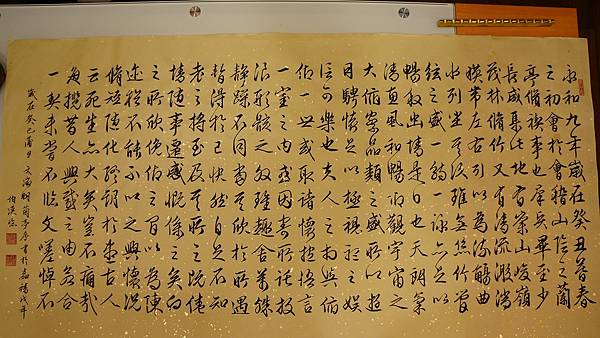 永和九年歲在癸丑暮春
之初會於會稽山陰之蘭
亭脩禊事也群賢畢至少
長咸集此地有崇山峻嶺
茂林脩竹又有清流激湍
映帶左右引以為流觴曲
水列坐其次雖無絲竹管
絃之盛一觴一詠亦足以
暢敘幽情是日也天朗氣
清惠風和暢仰觀宇宙之
大俯察品類之盛所以遊
目騁懷足以極視聽之娛
信可樂也夫人之相與俯
仰一世或取諸懷抱悟言
一室之內或因寄所託放
浪形骸之外雖趣舍萬殊
靜躁不同當其欣於所遇
暫得於己快然自足不知
老之將至及其所之既倦
情隨事遷感慨係之矣向
之所欣俛仰之間以為陳
迹猶不能不以之興懷況
脩短隨化終期於盡古人
云死生亦大矣豈不痛哉
每攬昔人興感之由若合
一契未嘗不臨文嗟悼不
歲在癸巳 蘭亭序書於嘉